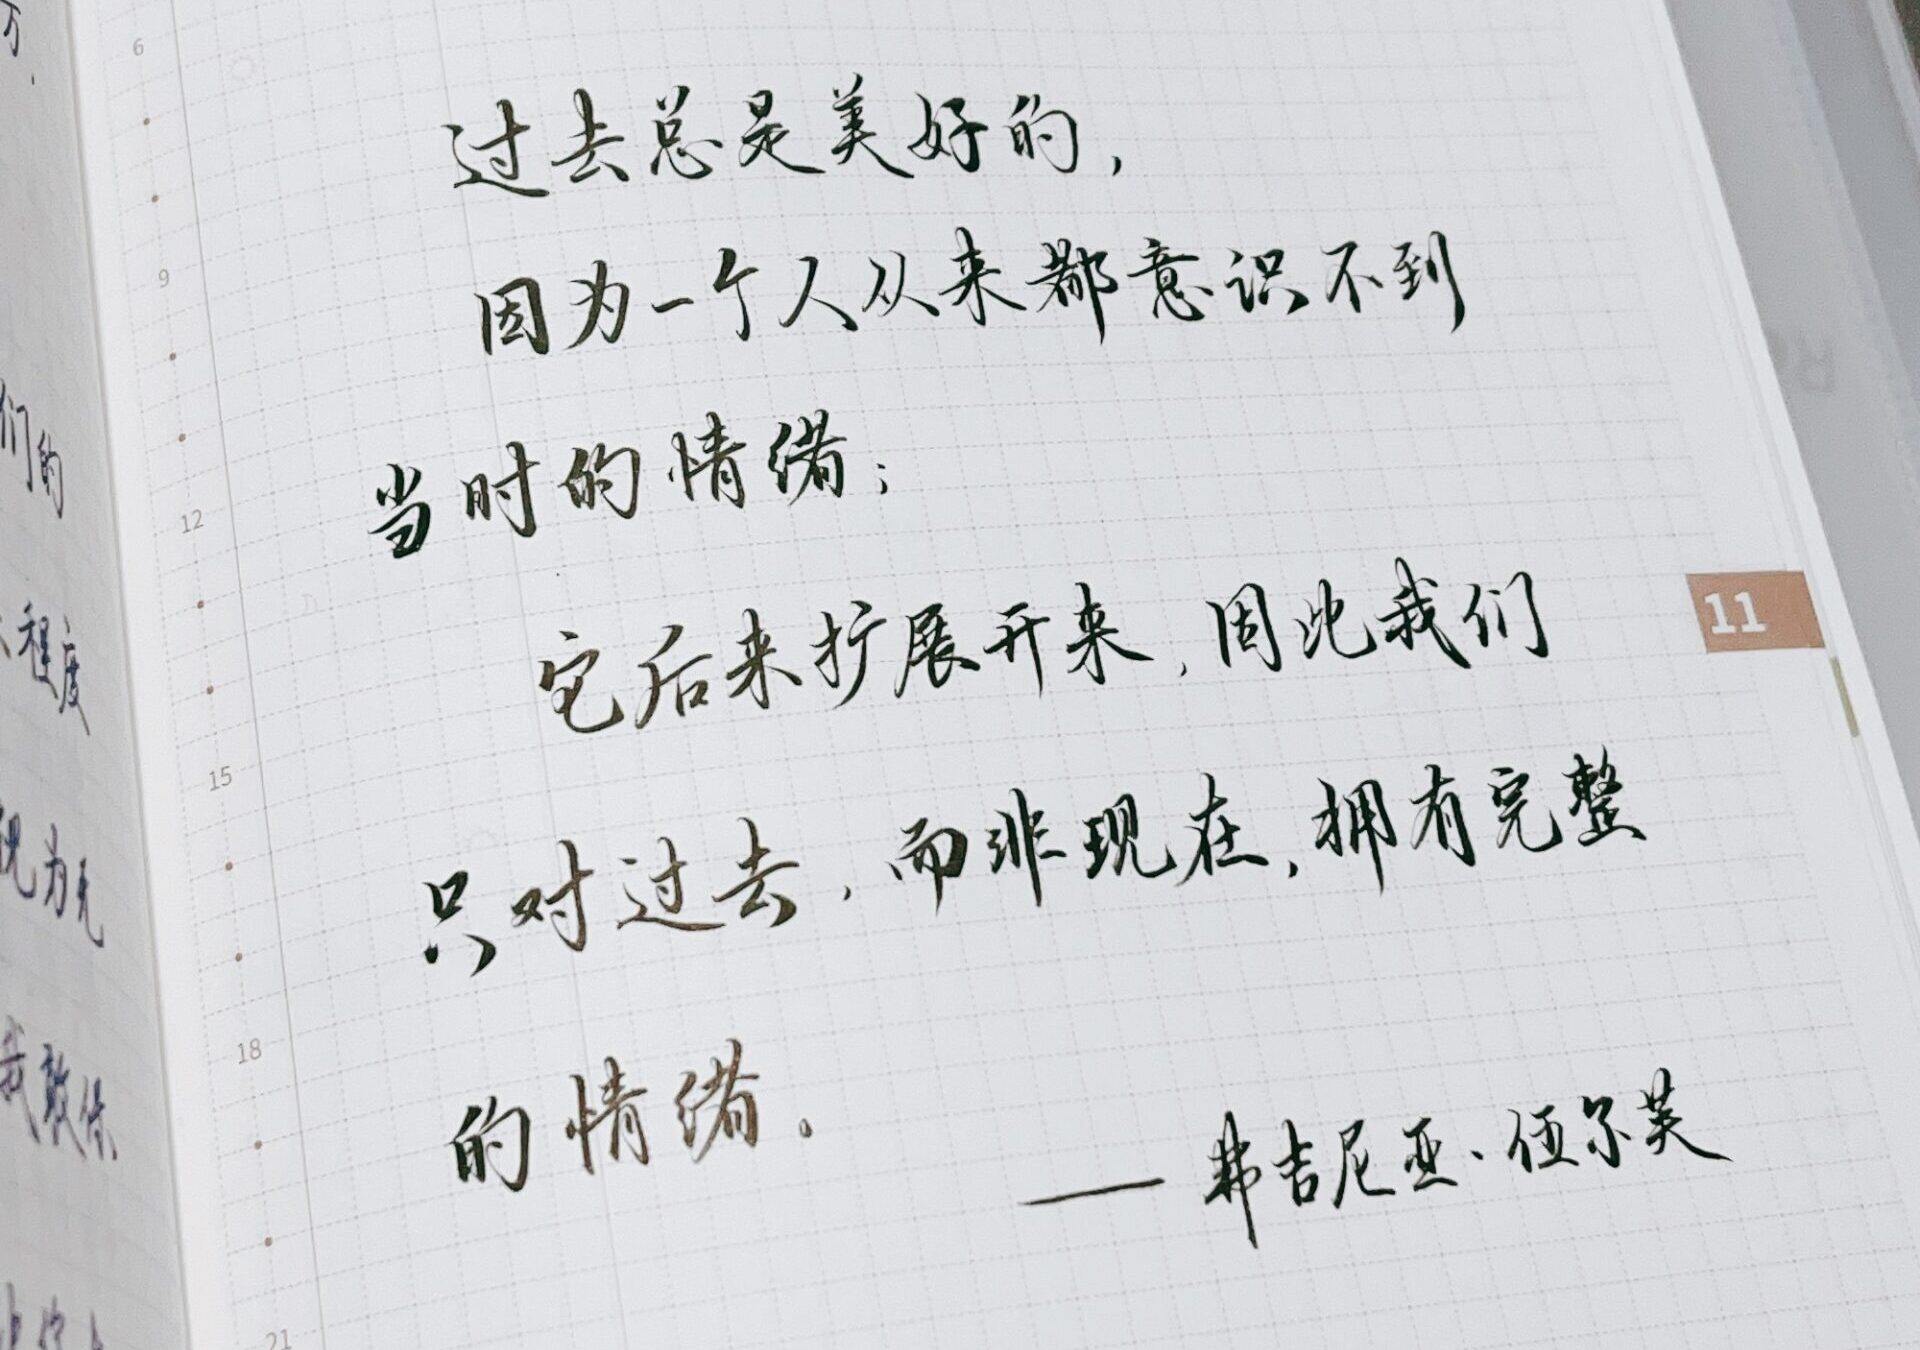 过去总是美好的，
因为一个人从来都意识不到
当时的情绪；
它后来扩展开来，因此我们
只对过去，而非现在，拥有完整
的情绪。
——弗吉尼亚·伍尔芙
们的
程度
视为无
我敢保
6
9
12
15
18
21
11